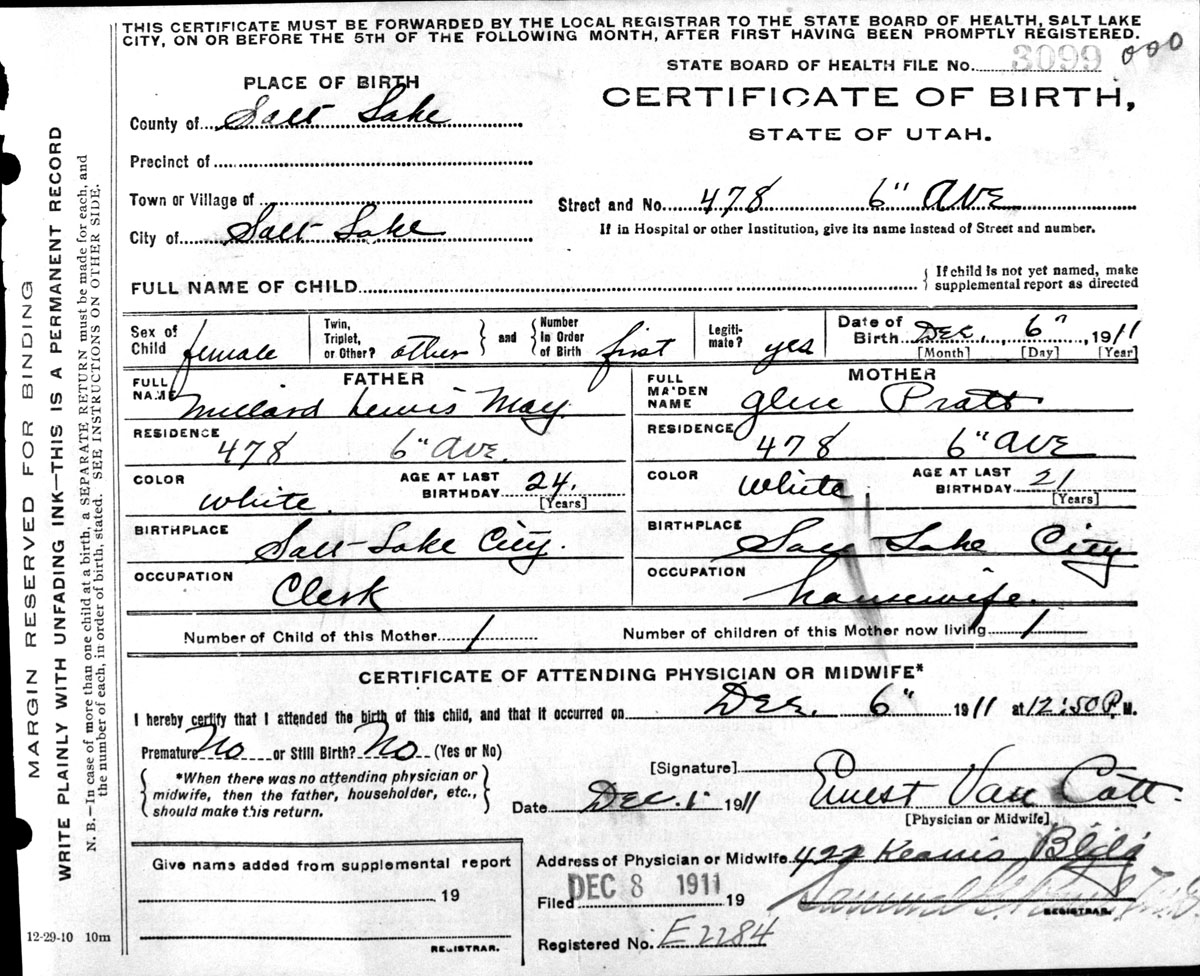 THIS CERTIFICATE MUST BE FORWARDED BY THE LOCAL REGISTRAR TO THE STATE BOARD OF HEALTH, SALT LAKE
CITY, ON OR BEFORE THE 5TH OF THE FOLLOWING MONTH, AFTER FIRST HAVING BEEN PROMPTLY REGISTERED.
STATE BOARD OF HEALTH FILE No. 3099 000
PLACE OF BIRTH
CERTIFICATE OF BIRTH,
STATE OF UTAH.
County of Salt Lake
Precinct of
Town or Village of
Street and No. 478 6" AVE
City of Salt Lake
If in Hospital or other Institution, give its name instead of Street and number.
FULL NAME OF CHILD
{ If child is not yet named, make
supplemental report as directed
Sex of Child female
Twin, Triplet, or Other? other } and { Number in Order of Birth first
Legitimate? yes
Date of Birth Dec. 6", 1911
[Month] [Day] [Year]
FATHER
FULL NAME Millard Lewis May.
RESIDENCE 478 6" AVE.
COLOR White. AGE AT LAST BIRTHDAY 24. [Years]
BIRTHPLACE Salt Lake City.
OCCUPATION Clerk
MOTHER
FULL MAIDEN NAME Pratt
RESIDENCE 478 6" AVE
COLOR White. AGE AT LAST BIRTHDAY 21 [Years]
BIRTHPLACE Salt Lake City
OCCUPATION housewife.
Number of Child of this Mother 1 Number of children of this Mother now living 1
CERTIFICATE OF ATTENDING PHYSICIAN OR MIDWIFE*
I hereby certify that I attended the birth of this child, and that it occurred on Dec. 6" 1911 at 12:50 P. M.
Premature No or Still Birth? No (Yes or No)
{ *When there was no attending physician or
midwife, then the father, householder, etc.,
should make this return. }
[Signature] Ernest Van Cott
[Physician or Midwife]
Date Dec. 1911
Give name added from supplemental report
19
REGISTRAR.
12-29-10 10m
Address of Physician or Midwife 422 Kearns Bldg
Filed DEC 8 1911 19
Samuel G.
REGISTRAR.
Registered No. E2284
MARGIN RESERVED FOR BINDING
WRITE PLAINLY WITH UNFADING INK—THIS IS A PERMANENT RECORD
N. B.—In case of more than one child at a birth, a SEPARATE RETURN must be made for each, and
the number of each, in order of birth, stated. SEE INSTRUCTIONS ON OTHER SIDE.